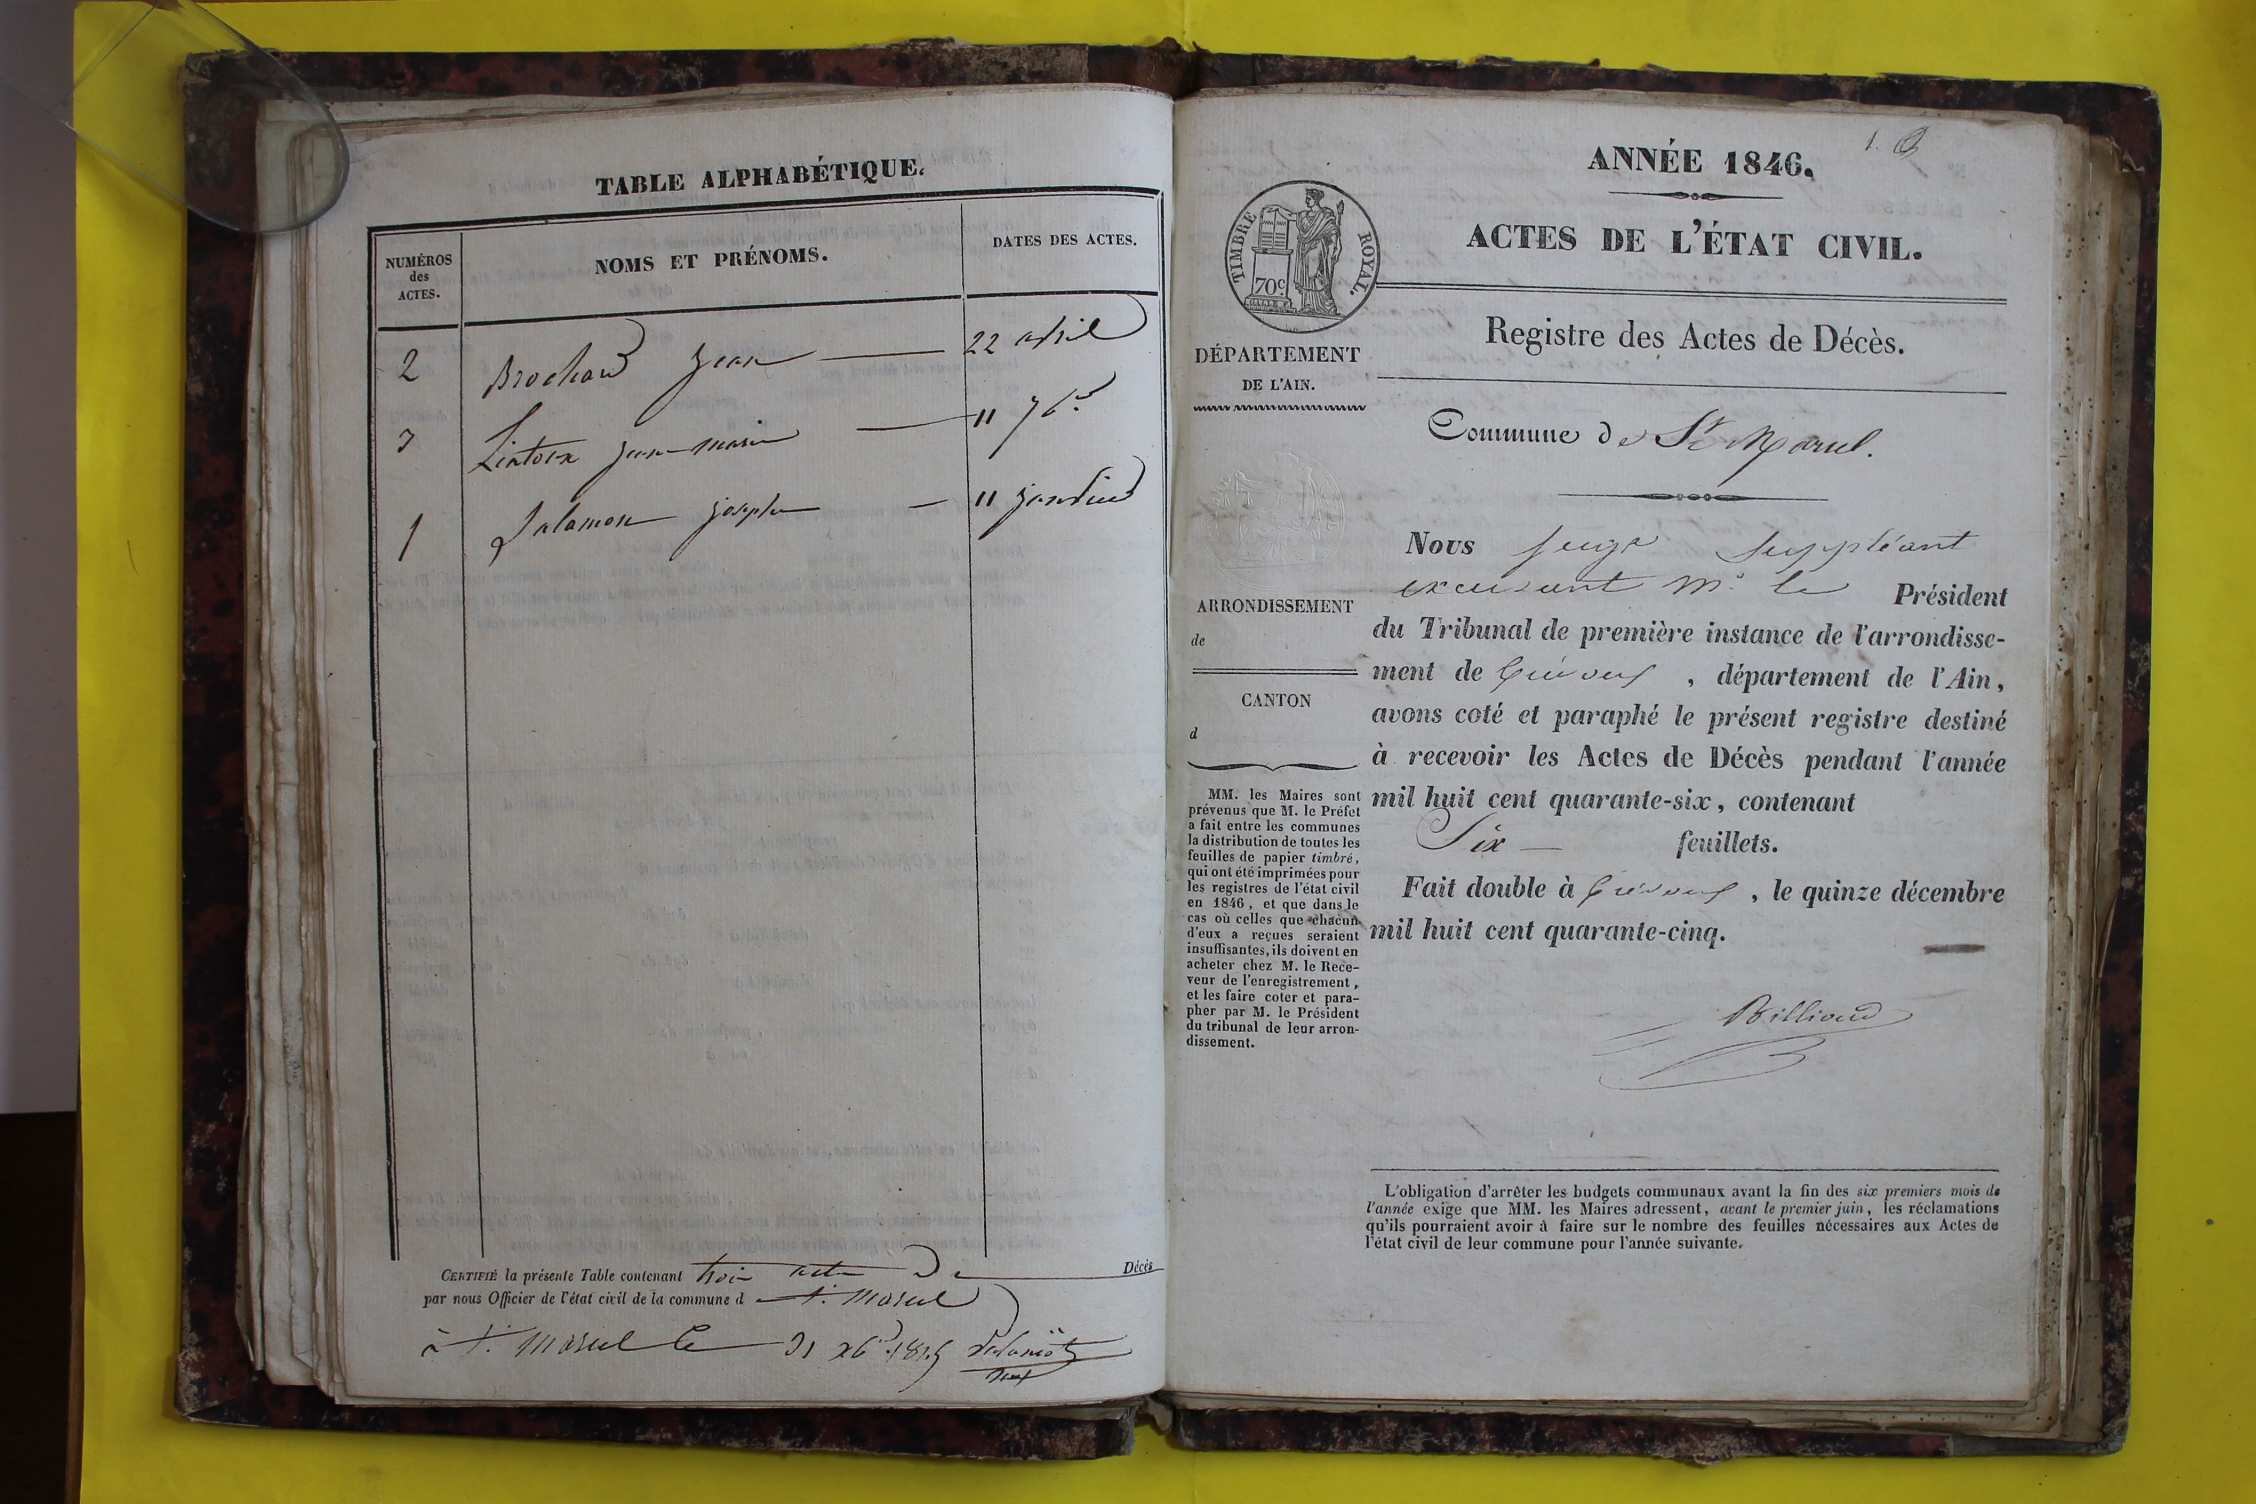 TABLE ALPHABÉTIQUE.
NUMÉROS
des
ACTES.
NOMS ET PRÉNOMS.
DATES DES ACTES.
2 Brochard Jean 22 avril
3 jean-marie 11 7bre
1 Salamon joseph 11 janvier
CERTIFIÉ la présente Table contenant trois actes De Décès
par nous Officier de l'état civil de la commune d St. Marcel
à St. Marcel le 31 xbre 1845
ANNÉE 1846.
1.
ACTES DE L'ÉTAT CIVIL.
TIMBRE ROYAL.
70c
Registre des Actes de Décès.
DÉPARTEMENT
DE L'AIN.
Commune de St Marcel.
ARRONDISSEMENT
de
CANTON
d
MM. les Maires sont
prévenus que M. le Préfet
a fait entre les communes
la distribution de toutes les
feuilles de papier timbré,
qui ont été imprimées pour
les registres de l'état civil
en 1846, et que dans le
cas où celles que chacun
d'eux a reçues seraient
insuffisantes, ils doivent en
acheter chez M. le Rece-
veur de l'enregistrement,
et les faire coter et para-
pher par M. le Président
du tribunal de leur arron-
dissement.
Nous juge suppléant
excusant Mr. le Président
du Tribunal de première instance de l'arrondisse-
ment de Trévoux, département de l'Ain,
avons coté et paraphé le présent registre destiné
à recevoir les Actes de Décès pendant l'année
mil huit cent quarante-six, contenant
Six feuillets.
Fait double à Trévoux, le quinze décembre
mil huit cent quarante-cinq.
Billioud
L'obligation d'arrêter les budgets communaux avant la fin des six premiers mois de
l'année exige que MM. les Maires adressent, avant le premier juin, les réclamations
qu'ils pourraient avoir à faire sur le nombre des feuilles nécessaires aux Actes de
l'état civil de leur commune pour l'année suivante.